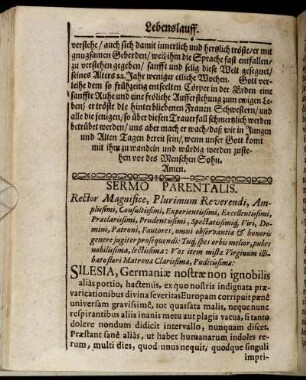 Lebenslauff.
verstehe / auch sich damit innerlich und hertzlich tröste / er mit
gnugsamen Geberden / weil ihm die Sprache fast entfallen /
zu verstehen gegeben / sanfft und selig diese Welt gesegnet /
seines Alters 22. Jahr weniger etliche Wochen. Gott ver-
leihe dem so frühzeitig entseelten Cörper in der Erden eine
sanffte Ruhe und eine fröliche Aufferstehung zum ewigen Le-
ben / er tröste die hinterbliebenen Frauen Schwestern / und
alle die jenigen / so über diesen Trauerfall schmertzlich werden
betrübet worden / uns aber mache er wach / daß wir in Jungen
und Alten Tagen bereit sein / wenn unser Gott komt
mit ihm zu wandeln und würdig werden zuste-
hen vor des Menschen Sohn.
Amen.
SERMO PARENTALIS.
Rector Magnifice, Plurimum Reverendi, Am-
plissimi, Consultissimi, Experientissimi, Excellentissimi,
Præclarissimi, Prudentissimi, Spectatissimiq; Viri, Do-
mini, Patroni, Fautores, omni observantiæ & honoris
genere jugiter prosequendi: Tuq; spes orbis melior, pubes
nobilissima, lectissima: Vos item mista Virginum illi-
bato flori Matrona Clarissima, Pudicissima.
SILESIA, Germaniæ nostræ non ignobilis
aliàs portio, hactenus, ex quo nostris indignata præ-
varicationibus divina severitas Europam corripuit pænè
universam gravissimè, tot quassata malis, neque nunc
respirantibus aliis inanis metu aut plagis vacua, si tanto
dolere nondum didicit intervallo, nunquam discet.
Præstant sanè aliis, ut habet humanarum indoles re-
rum, multi dies, quod unus nequit, quodque singuli
impri-